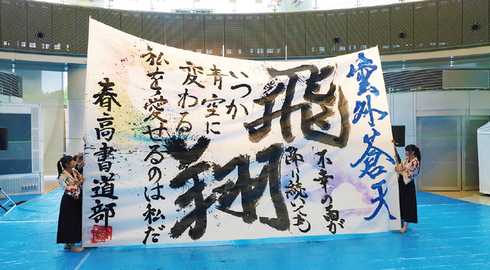 雲外蒼天
飛翔
不幸の雨が
降り続いても
いつか
青空に
変わる
私を愛せるのは私だ
春高書道部